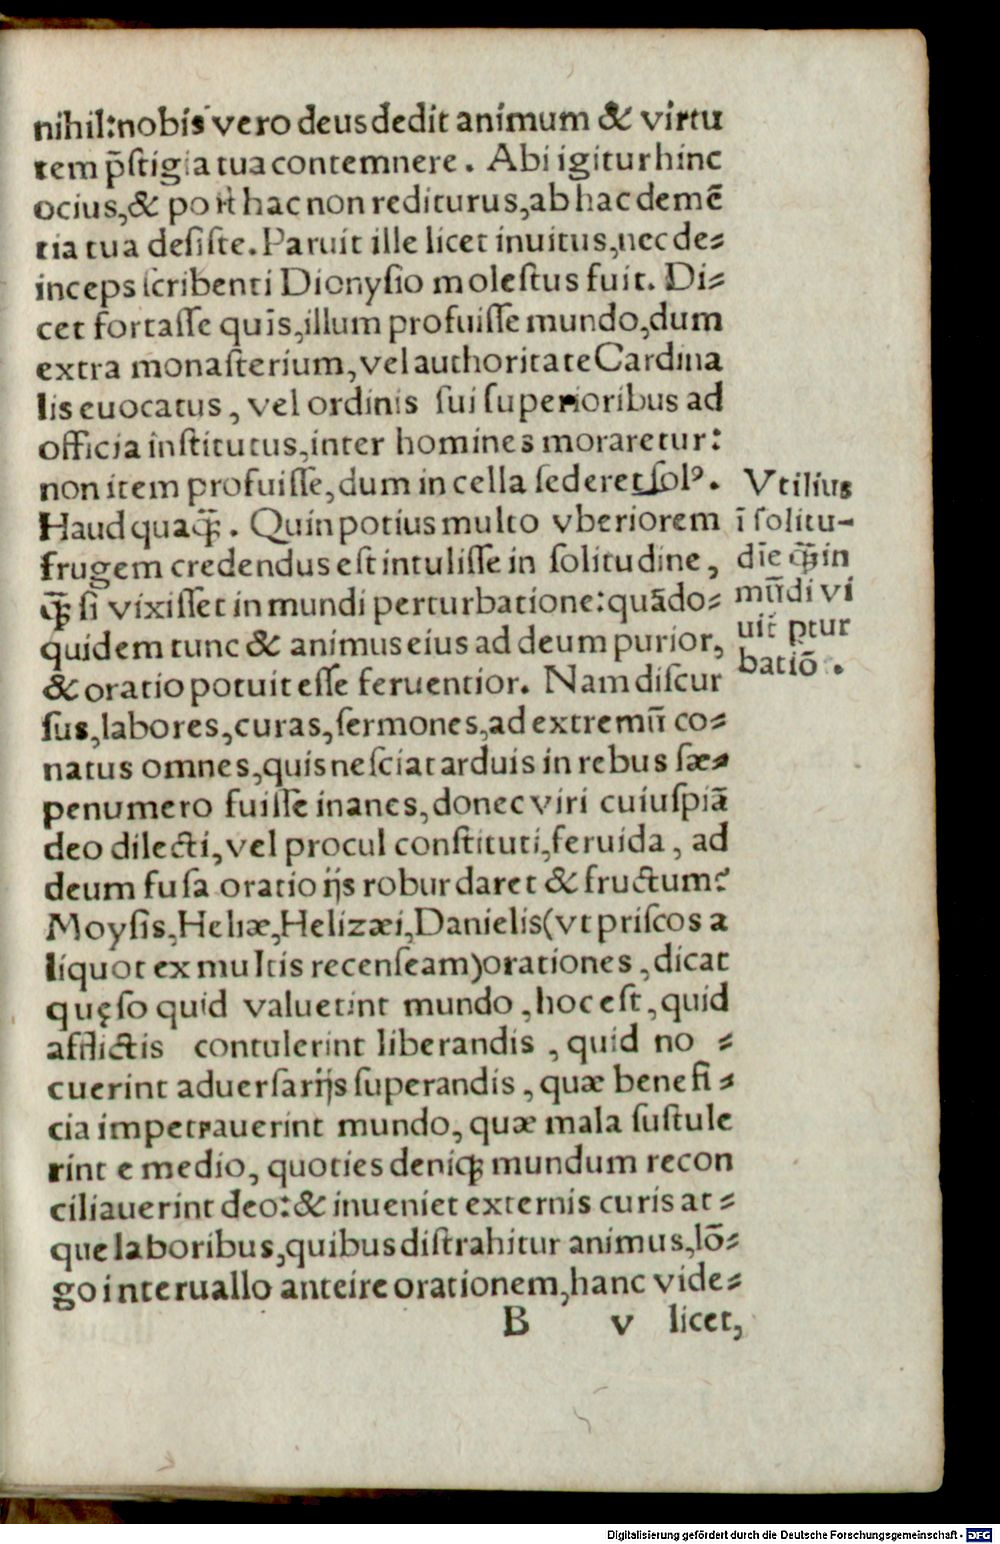 nihil:nobis vero deus dedit animum & virtu
tem p̄ſtigia tua contemnere. Abi igitur hinc
ocius,& poſt hac non rediturus,ab hac demē
tia tua deſiſte. Paruit ille licet inuitus,nec de⸗
inceps ſcribenti Dionyſio moleſtus fuit. Di⸗
cet fortaſſe quis,illum profuiſſe mundo,dum
extra monaſterium,vel authoritate Cardina
lis euocatus, vel ordinis ſui ſuperioribus ad
officia inſtitutus,inter homines moraretur:
non item profuiſſe,dum in cella ſederet ſolꝰ.
Haud quaꝙ̃. Quin potius multo vberiorem
frugem credendus eſt intuliſſe in ſolitudine,
ꝙ̃ ſi vixiſſet in mundi perturbatione:quādo⸗
quidem tunc & animus eius ad deum purior,
& oratio potuit eſſe feruentior. Nam diſcur
ſus,labores,curas,ſermones,ad extremū co⸗
natus omnes,quis neſciat arduis in rebus ſæ⸗
penumero fuiſſe inanes,donec viri cuiuſpiā
deo dilecti,vel procul conſtituti,feruida, ad
deum fuſa oratio ijs robur daret & fructum?
Moyſis,Heliæ,Helizæi,Danielis(vt priſcos a
liquot ex multis recenſeam)orationes,dicat
quęſo quid valuerint mundo,hoc eſt,quid
afflictis contulerint liberandis, quid no⸗
cuerint aduerſarijs ſuperandis, quæ benefi⸗
cia impetrauerint mundo, quæ mala ſuſtule
rint e medio, quoties deniqꝫ mundum recon
ciliauerint deo:& inueniet externis curis at⸗
que laboribus,quibus diſtrahitur animus,lō⸗
go interuallo anteire orationem,hanc vide⸗
B v licet,
Vtilius
ī ſolitu-
dīe ꝙ̃ in
mūdi vi
uit ꝑtur
batiō.
Digitalisierung gefördert durch die Deutsche Forschungsgemeinschaft - DFG